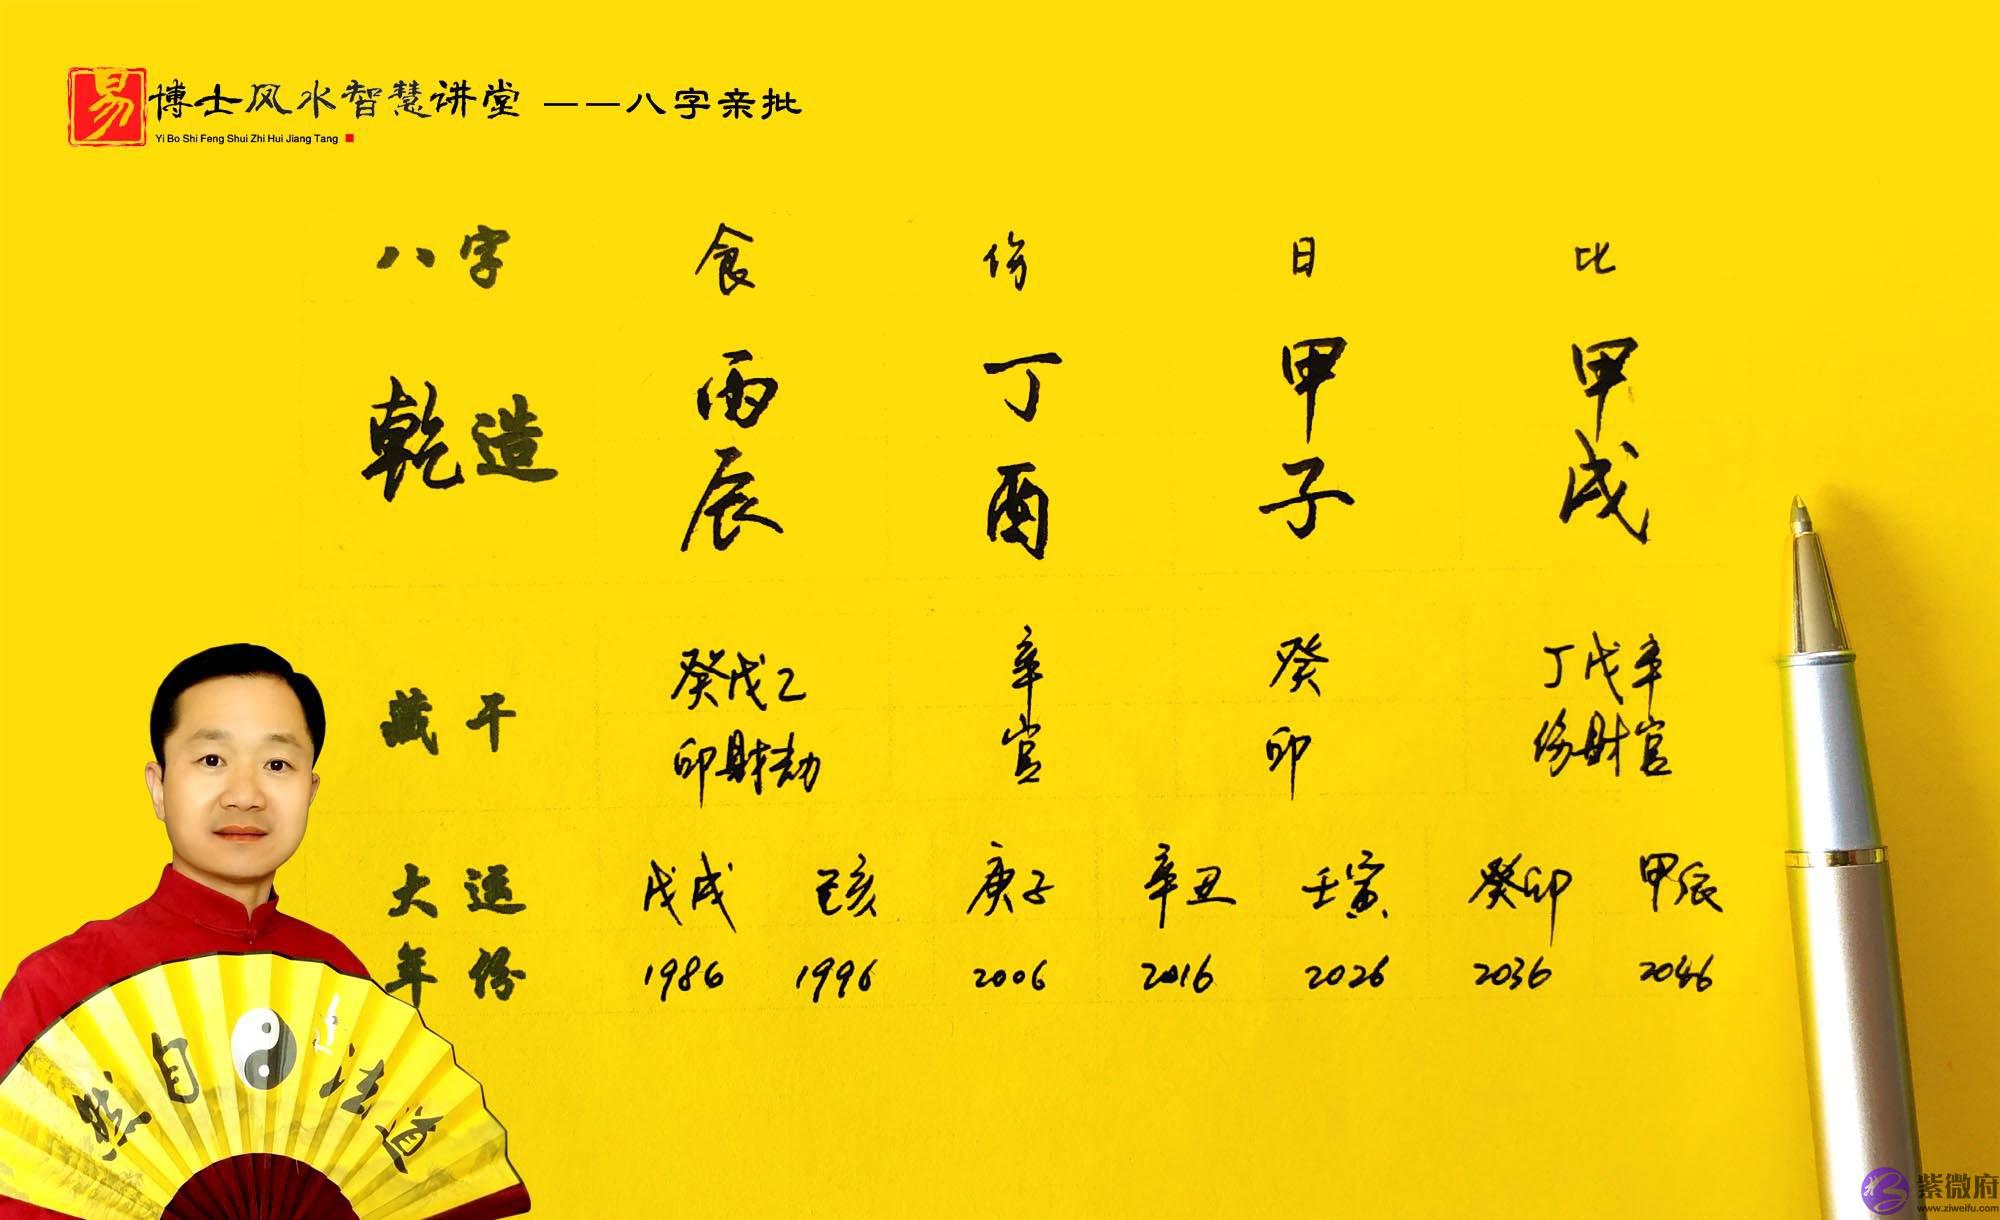 易 博士风水智慧讲堂 ——八字亲批
Yi Bo Shi Feng Shui Zhi Hui Jiang Tang
八字 食 伤 日 比
乾造 丙 丁 甲 甲
辰 酉 子 戌
藏干 癸戊乙 辛 癸 丁戊辛
印财劫 官 印 伤财官
大运 戊戌 己亥 庚子 辛丑 壬寅 癸卯 甲辰
年份 1986 1996 2006 2016 2026 2036 2046
道法自然
紫微府
www.ziweifu.com